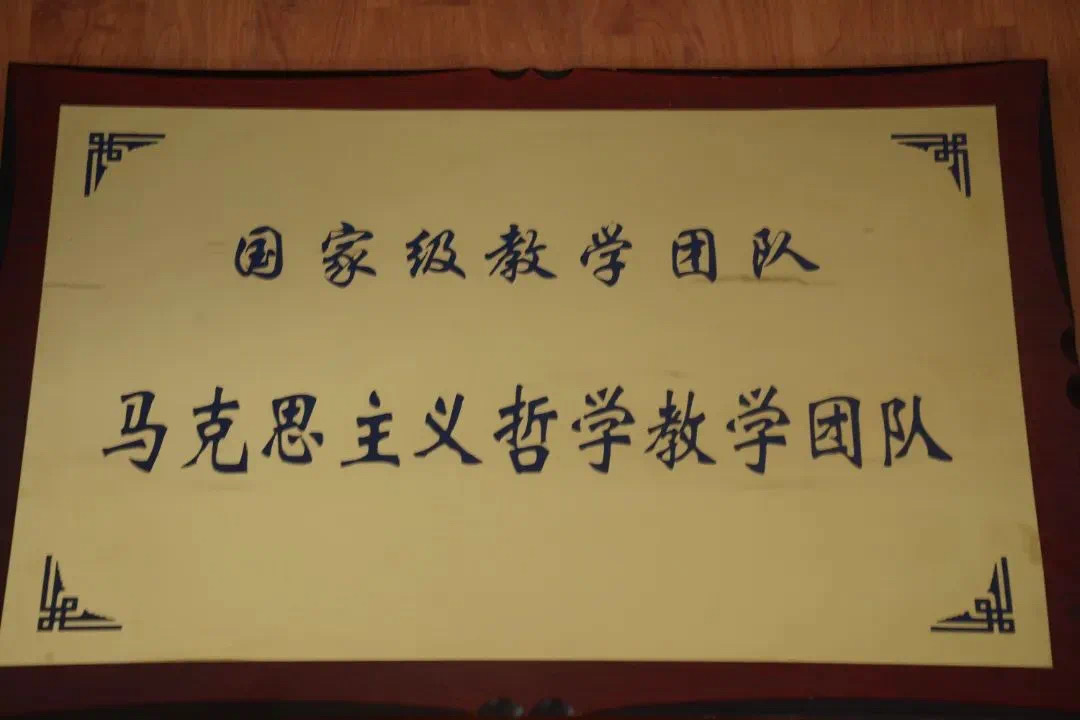 国家级教学团队
马克思主义哲学教学团队